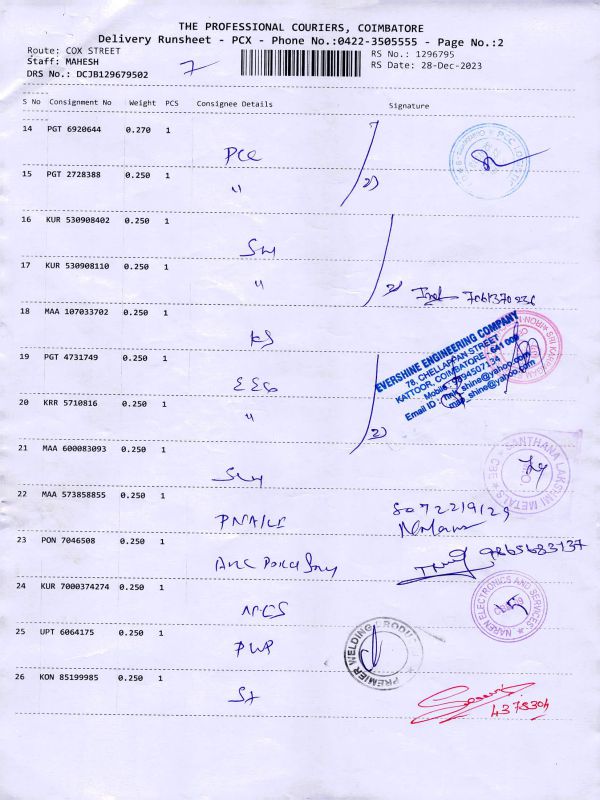 THE PROFESSIONAL COURIERS, COIMBATORE
Delivery Runsheet - PCX - Phone No.:0422-3505555 - Page No.:2
Route: COX STREET
RS No.: 1296795
Staff: MAHESH
RS Date: 28-Dec-2023
DRS No.: DCJB129679502
7
S No Consignment No Weight PCS Consignee Details Signature
14 PGT 6920644 0.270 1
PCC
15 PGT 2728388 0.250 1
"
2)
16 KUR 530908402 0.250 1
17 KUR 530908110 0.250 1
"
2)
7061370236
18 MAA 107033702 0.250 1
KS
EVERSHINE ENGINEERING COMPANY
78, CHELLAPPAN STREET
KATTOOR, COIMBATORE - 641 009
Mobile : 9894507134
19 PGT 4731749 0.250 1
20 KRR 5710816 0.250 1
"
2)
21 MAA 600083093 0.250 1
SANTHANA LAKSHMI METALS
22 MAA 573858855 0.250 1
8072219129
23 PON 7046508 0.250 1
9865683137
24 KUR 7000374274 0.250 1
NES
NAREN ELECTRONICS AND SERVICES
25 UPT 6064175 0.250 1
PWP
PREMIER WELDING PRODUCTS
26 KON 85199985 0.250 1